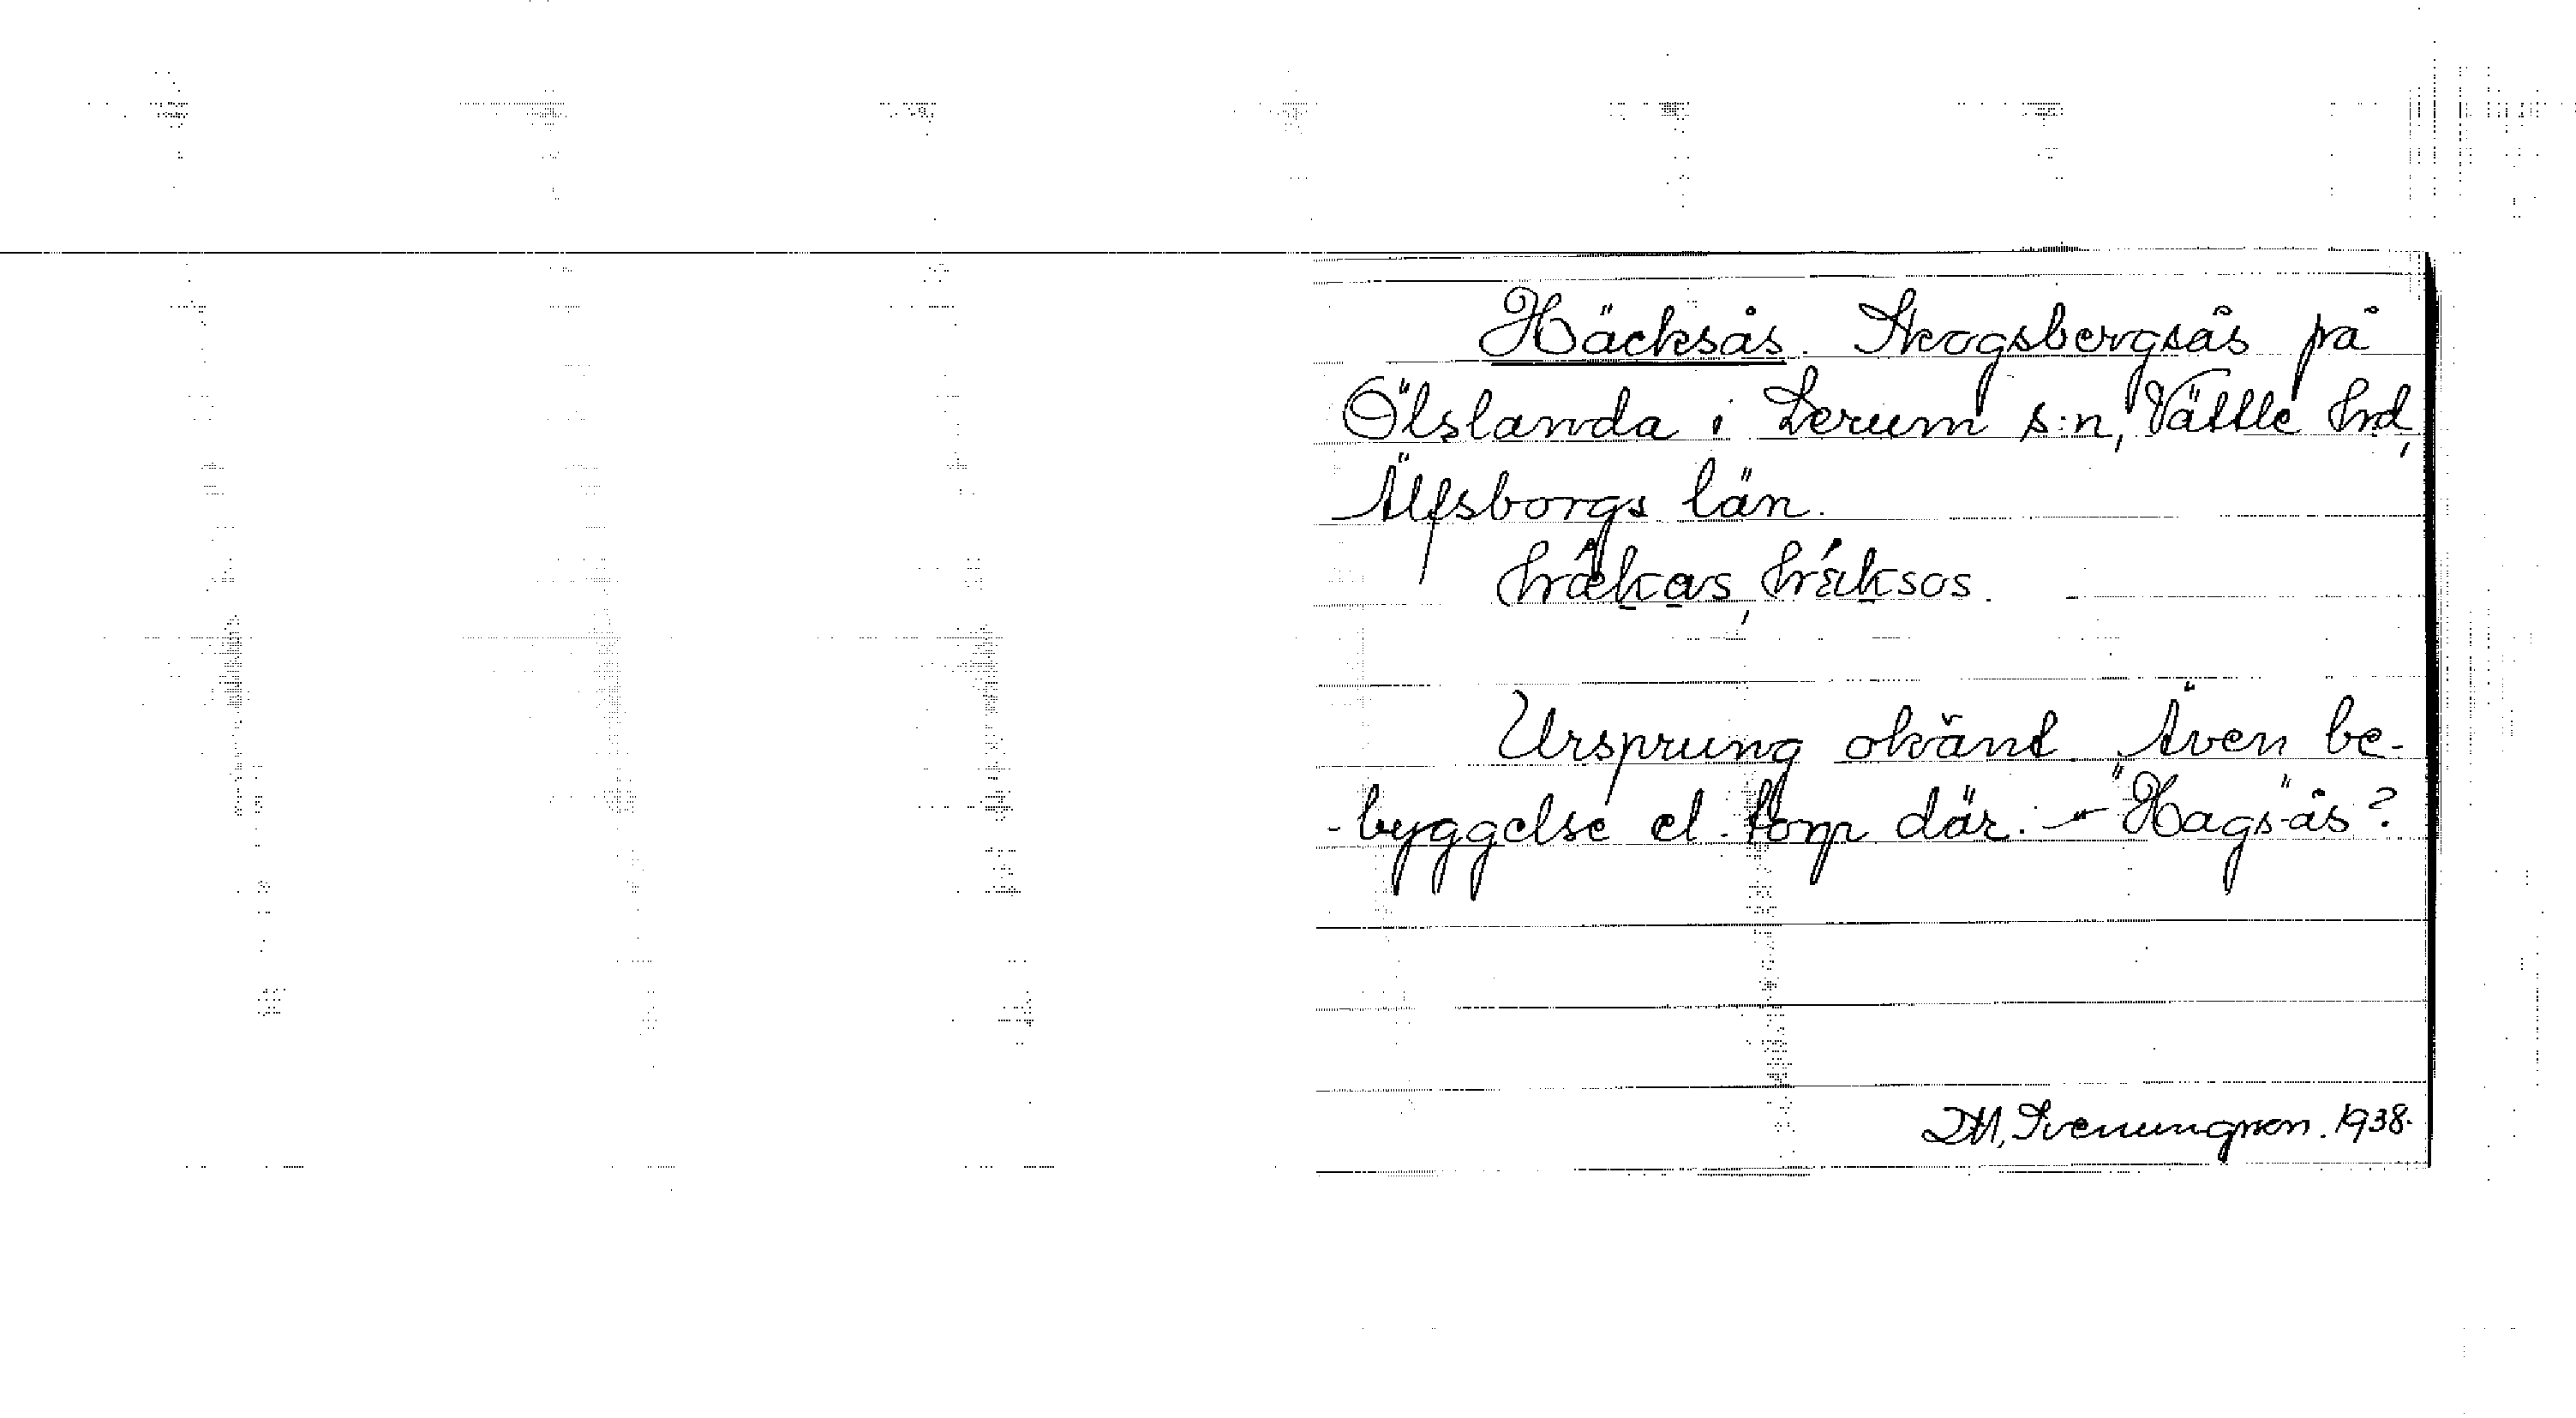 Häcksås. Skogsbergsås på
Ölslanda i Lerum s:n, Vättle hrd,
Älfsborgs län.
Ursprung okänt. Även be-
-byggelse el. torp där. - "Hags"-ås?
D.M. Svenungsson. 1938.